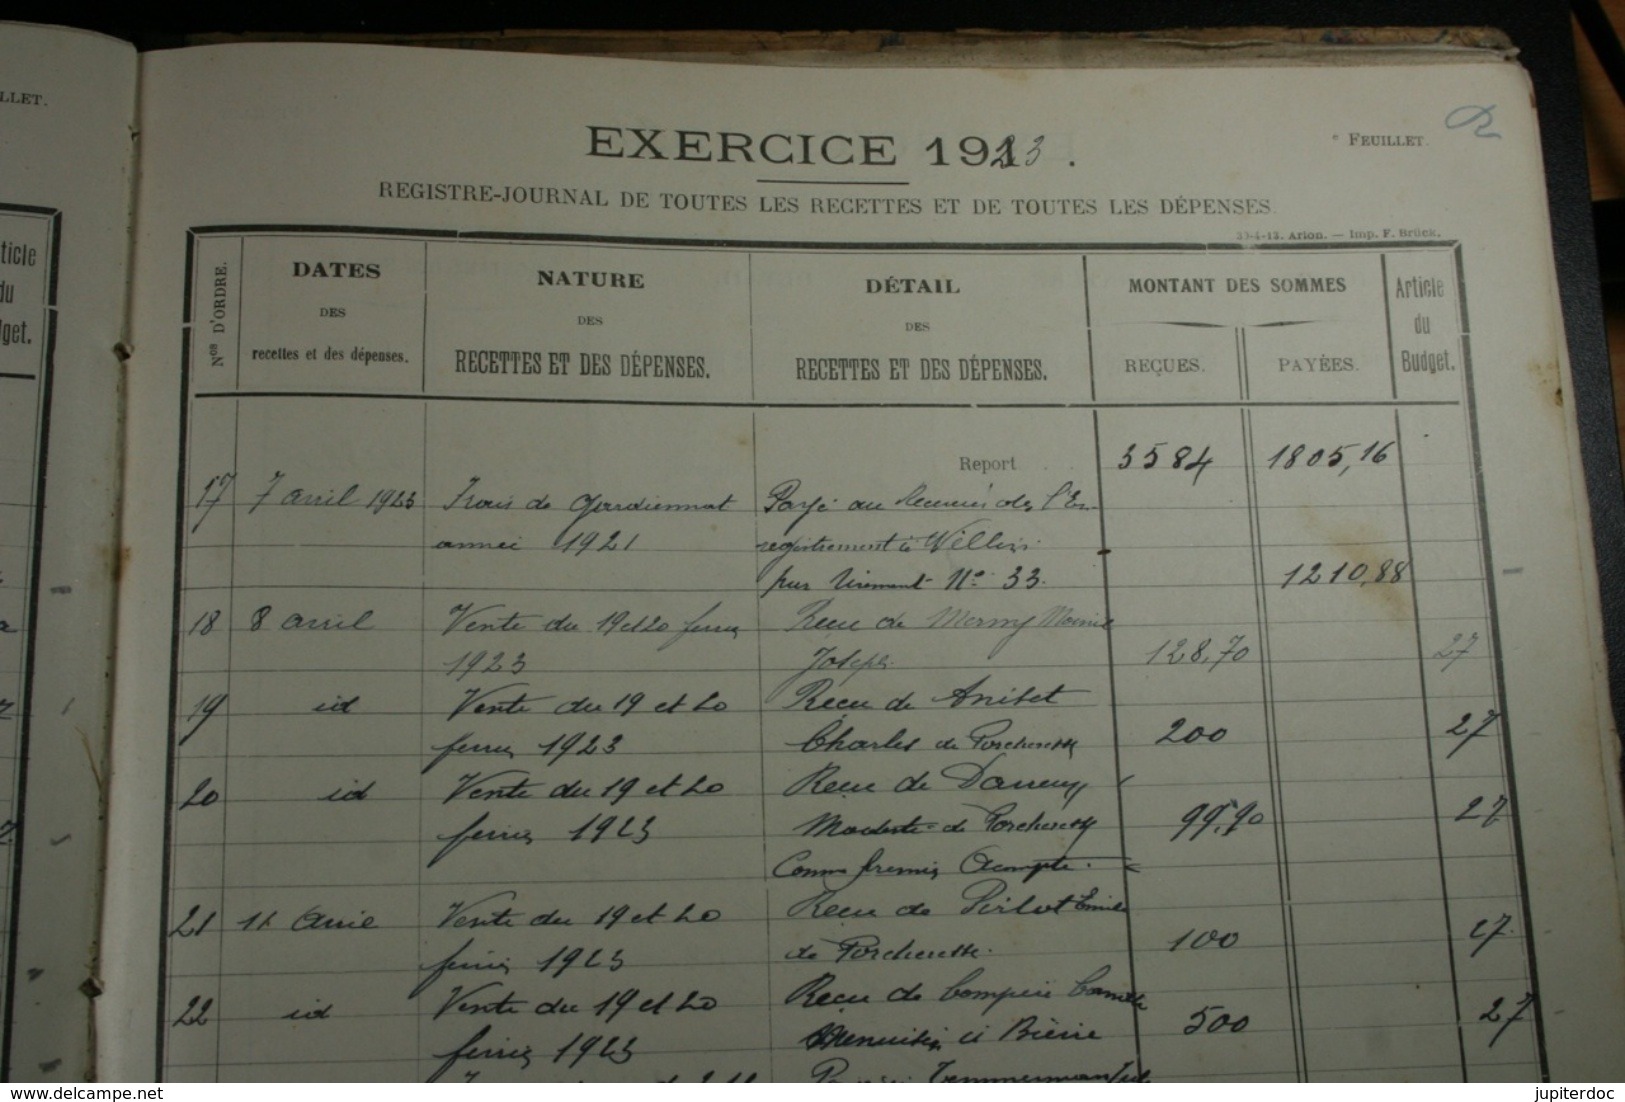 LLET.
ticle
du
dget.
EXERCICE 1923.
e FEUILLET.
REGISTRE-JOURNAL DE TOUTES LES RECETTES ET DE TOUTES LES DÉPENSES.
Arlon. — Imp. F. Brück.
Nos D'ORDRE.
DATES
DES
recettes et des dépenses.
NATURE
DES
RECETTES ET DES DÉPENSES.
DÉTAIL
DES
RECETTES ET DES DÉPENSES.
MONTANT DES SOMMES
REÇUES.
PAYÉES.
Article
du
Budget.
Report 3584 1805,16
17 7 avril 1923 Frais de gardiennat Payé au Receveur de l'En-
année 1921 registrement à Wellin
par virement No 33. 1210,88
18 8 avril Vente du 19 et 20 février Reçu de
1923 Joseph 128,70 27
19 id Vente du 19 et 20 Reçu de
février 1923 Charles de Porcheresse 200 27
20 id Vente du 19 et 20 Reçu de
février 1923 Modeste de Porcheresse 99,90 27
Comme premier Acompte.
21 11 avril Vente du 19 et 20 Reçu de Pirlot Emile
février 1923 de Porcheresse. 100 27
22 id Vente du 19 et 20 Reçu de Compère Camille
février 1923 à Bièvre 500 27
jupiterdoc
www.delcampe.net